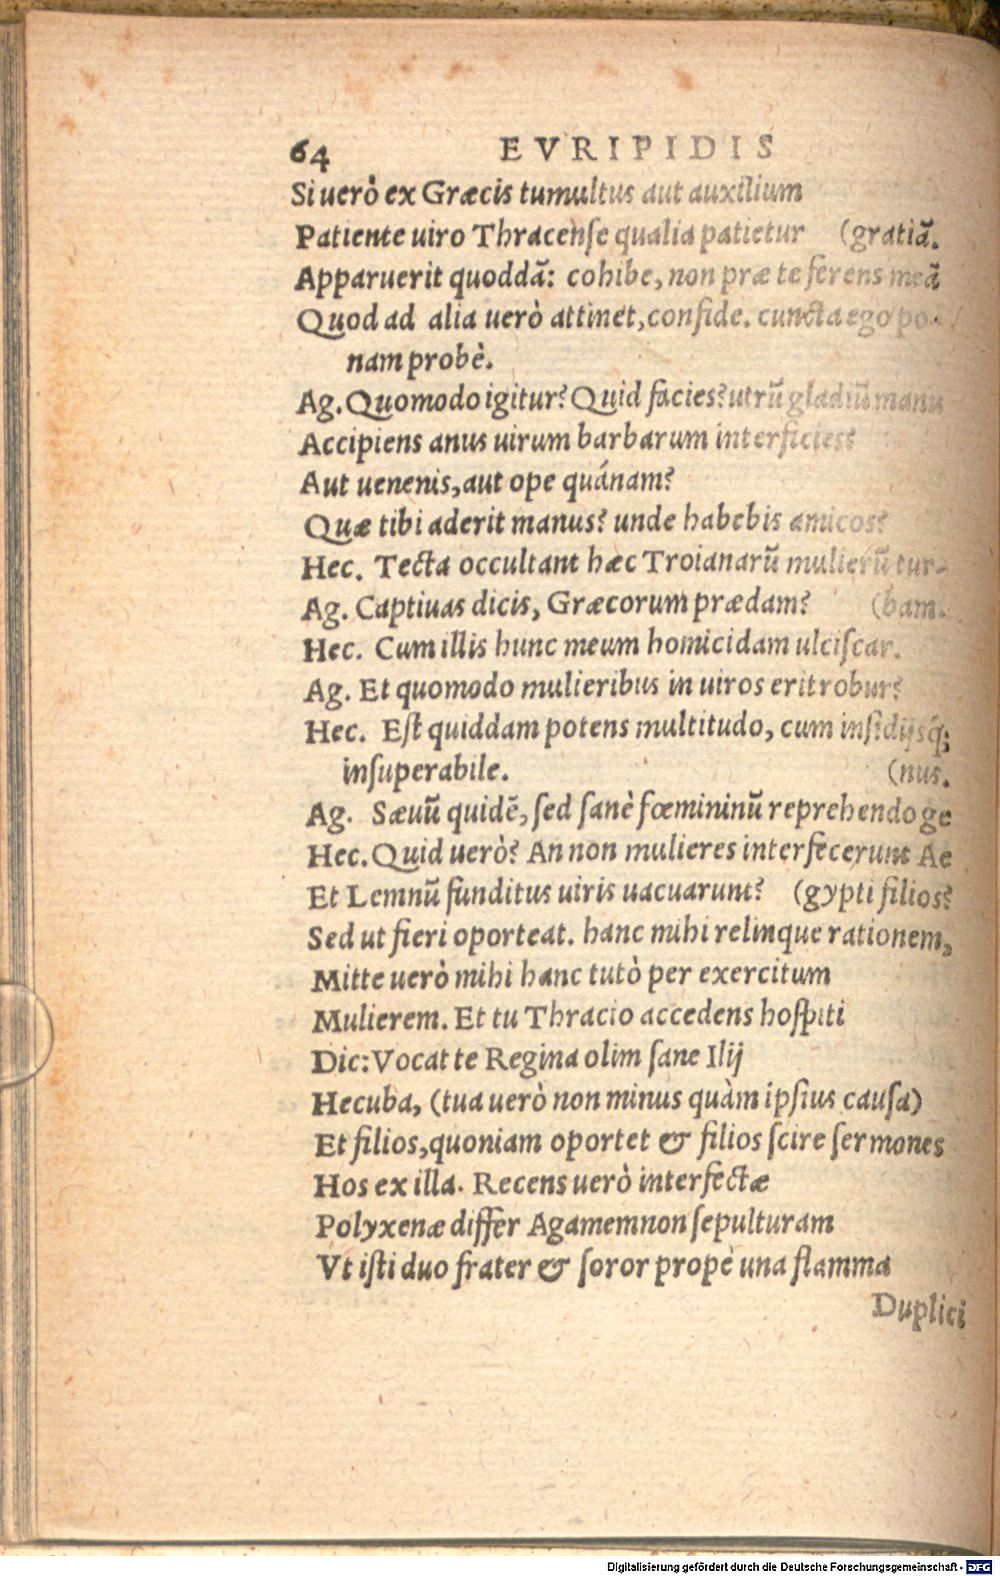 64 EVRIPIDIS
Si uerò ex Græcis tumultus aut auxilium
Patiente uiro Thracense qualia patietur (gratiã.
Apparuerit quoddã: cohibe, non præ te ferens meã
Quod ad alia uerò attinet, confide. cuncta ego po-
nam probè.
Ag. Quomodo igitur? Quid facies? utrũ gladiũ manu
Accipiens anus uirum barbarum interficies?
Aut uenenis, aut ope quánam?
Quæ tibi aderit manus? unde habebis amicos?
Hec. Tecta occultant hæc Troianarũ mulierũ tur-
Ag. Captiuas dicis, Græcorum prædam? (bam.
Hec. Cum illis hunc meum homicidam ulciscar.
Ag. Et quomodo mulieribus in uiros erit robur?
Hec. Est quiddam potens multitudo, cum insidijsq́;
insuperabile. (nus.
Ag. Sæuũ quidẽ, sed sanè fœmininũ reprehendo ge
Hec. Quid uerò? An non mulieres interfecerunt Ae
Et Lemnũ funditus uiris uacuarunt? (gypti filios?
Sed ut fieri oporteat. hanc mihi relinque rationem,
Mitte uerò mihi hanc tutò per exercitum
Mulierem. Et tu Thracio accedens hospiti
Dic: Vocat te Regina olim sane Ilij
Hecuba, (tua uerò non minus quàm ipsius causa)
Et filios, quoniam oportet & filios scire sermones
Hos ex illa. Recens uerò interfectæ
Polyxenæ differ Agamemnon sepulturam
Vt isti duo frater & soror propè una flamma
Duplici
Digitalisierung gefördert durch die Deutsche Forschungsgemeinschaft - DFG